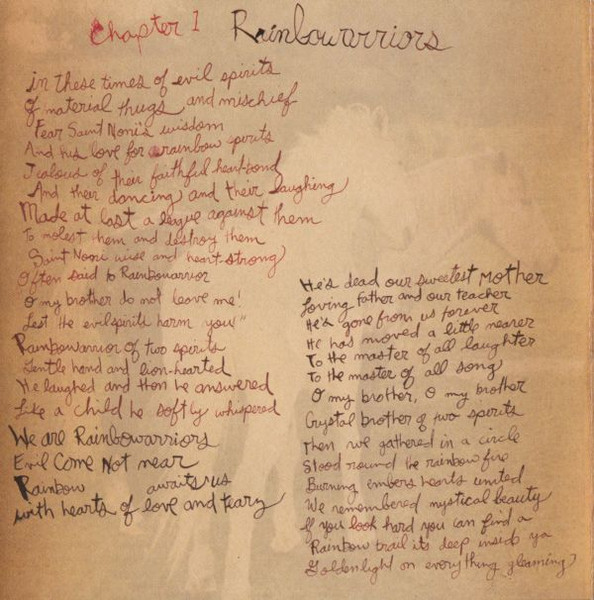 Chapter 1 Rainbowarriors
in these times of evil spirits
Of material thugs and mischief
Fear Saint Noni's wisdom
And his love for rainbow spirits
Jealous of their faithful heart-bond
And their dancing and their laughing
Made at last a league against them
To molest them and destroy them
Saint Nooni wise and heart-strong
Often said to Rainbowarrior
O my brother do not leave me!
Lest the evil spirits harm you!"
Rainbowarrior of two spirits
Gentle hand and lion-hearted
He laughed and then he answered
Like a child he softly whispered
We are Rainbowarriors
Evil Come Not near
Rainbow awaits us
with hearts of love and teary
He's dead our sweetest Mother
Loving father and our teacher
He's gone from us forever
He has moved a little nearer
To the master of all laughter
To the master of all song
O my brother, O my brother
Crystal brother of two spirits
Then we gathered in a circle
Stood round the rainbow fire
Burning embers hearts united
We remembered mystical beauty
If you look hard you can find a
Rainbow trail its deep inside ya
Goldenlight on everything gleaming